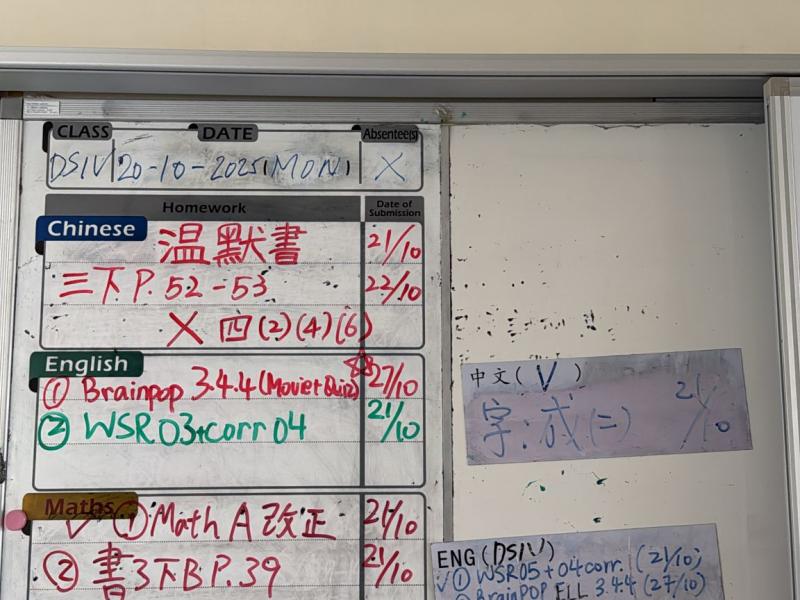 CLASS DATE Absentee(s)
DSIV 20-10-2025(MON) X
Homework Date of Submission
Chinese
温默書 21/10
三下 P.52-53 22/10
X 四(2)(4)(6)
English
① Brainpop 3.4.4 (Movie+Quiz) 27/10
② WSR03+corr 04 21/10
Maths
✓ ① Math A 改正 21/10
② 書3下B P.39 21/10
中文( V )
字:成(二) 21/10
ENG (DSIV)
✓① WSR05+04corr. (21/10)
② BrainPOP ELL 3.4.4 (27/10)